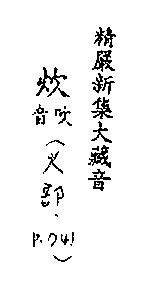 精嚴新集大藏音
炊
吹音
(火部·
P.041)